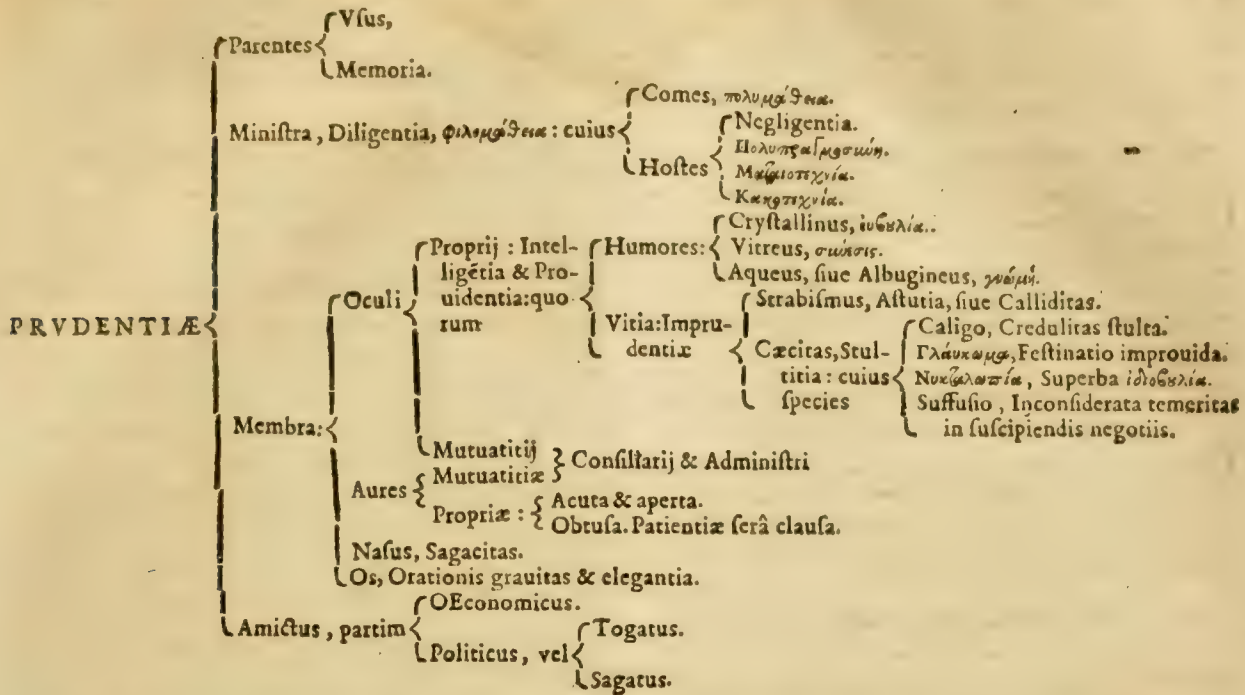 PRVDENTIÆ
Parentes
Vſus,
Memoria.
Miniſtra, Diligentia, φιλομάθεια: cuius
Comes, πολυμάθεια.
Hoſtes
Negligentia.
Πολυπραγμοσύνη.
Ματαιοτεχνία.
Κακοτεχνία.
Membra:
Oculi
Proprij : Intel-
ligētia & Pro-
uidentia: quo
rum
Humores:
Cryſtallinus, ἐυβουλία..
Vitreus, σύνεσις.
Aqueus, ſiue Albugineus, γνώμη.
Vitia: Impru-
dentiæ
Strabiſmus, Aſtutia, ſiue Calliditas.
Cæcitas, Stul-
titia: cuius
ſpecies
Caligo, Credulitas ſtulta.
Γλάυκωμα, Feſtinatio improuida.
Νυκταλωπία, Superba ἰδιοβουλία.
Suffuſio, Inconſiderata temeritas
in ſuſcipiendis negotiis.
Mutuatitij
Aures
Mutuatitiæ
Conſiliarij & Adminiſtri
Propriæ :
Acuta & aperta.
Obtuſa. Patientiæ ſerâ clauſa.
Naſus, Sagacitas.
Os, Orationis grauitas & elegantia.
Amictus, partim
OEconomicus.
Politicus, vel
Togatus.
Sagatus.